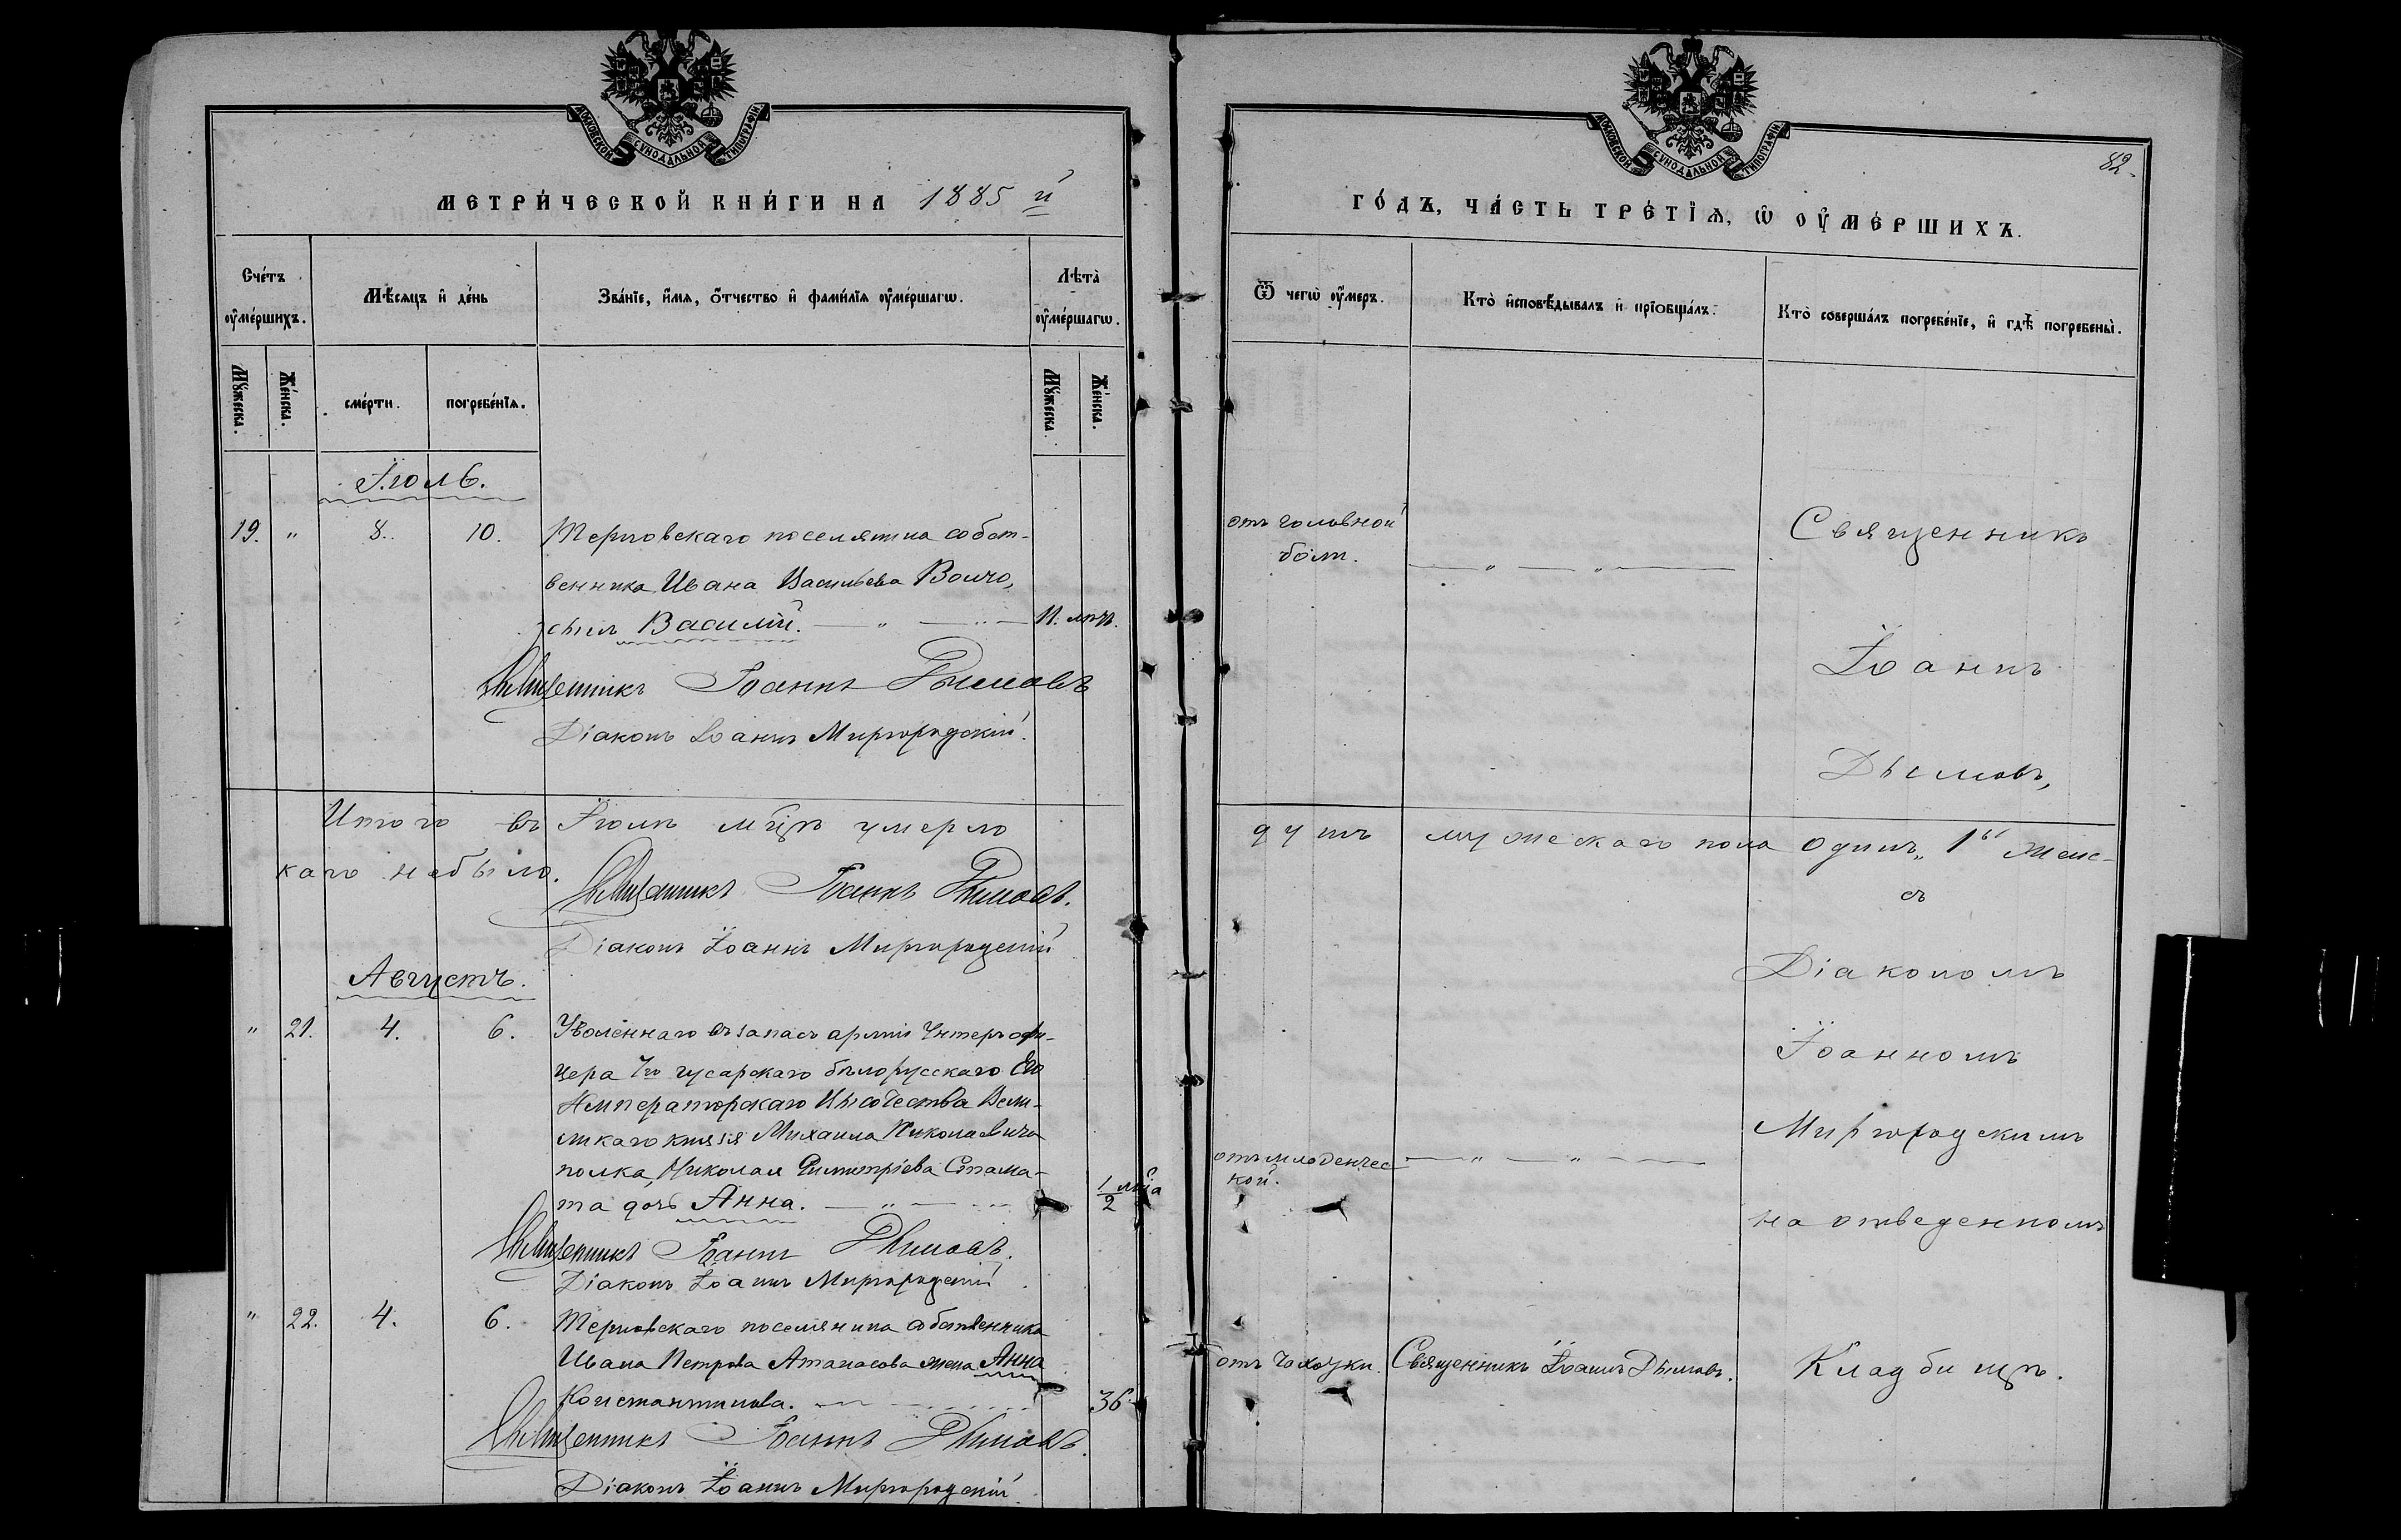 МОСКОВСКОЙ СѴНОДАЛЬНОЙ ТИПОГРАФІИ
МЕТРИ́ЧЕСКОЙ КНИ́ГИ НА 1885 й
Сче́тъ ᲂу҆ме́ршихъ.
Мѣ́сяцъ и҆ де́нь
Зва́нїе, и҆́мѧ, ѻ҆́тчество и҆ фами́лїѧ ᲂу҆ме́ршагѡ.
Лѣта̀ ᲂу҆ме́ршагѡ.
Мꙋ́жеска.
Же́нска.
сме́рти.
погребе́нїѧ.
Мꙋ́жеска.
Же́нска.
Іюль.
19. " 8. 10. Терновскаго поселянина собст-
венника, Ивана Васильева Волчо,
сынъ Василій. — " — 11. лѣтъ.
Священникъ Іоаннъ Дымовъ
Діаконъ Іоаннъ Миргородскій.
Итого въ Іюлѣ мѣцѣ умерло
каго небыло.
Священникъ Іоаннъ Дымовъ.
Діаконъ Іоаннъ Миргородскій
Августъ.
" 21. 4. 6. Уволеннаго въ запасъ арміи Унтеръ офи-
цера 7го гусарскаго бѣлорусскаго Его
Императорскаго Высочества Вели-
ликаго князя Михаила Николаевича
полка, Николая Димитріева Стама-
та дочь Анна. — " — 1/2 мца
Священникъ Іоаннъ Дымовъ.
Діаконъ Іоаннъ Миргородскій
" 22. 4. 6. Терновскаго поселянина собственника
Ивана Петрова Атанасова жена Анна
Константинова. 36
Священникъ Іоаннъ Дымовъ.
Діаконъ Іоаннъ Миргородскій
МОСКОВСКОЙ СѴНОДАЛЬНОЙ ТИПОГРАФІИ
82.
ГО́ДЪ, ЧА́СТЬ ТРЕ́ТЇѦ, Ѡ ОУ҆МЕ́РШИХЪ.
Ѿ чегѡ̀ ᲂу҆́меръ.
Кто̀ и҆сповѣ́дывалъ и҆ прїобща́лъ.
Кто̀ соверша́лъ погребе́нїе, и҆ гдѣ̀ погребены̀.
отъ головной
боли.
— " — " —
Священникъ
Іоаннъ
Дымовъ,
душъ мужескаго пола одинъ „1" женс-
съ
Діакономъ
Іоанномъ
Миргородскимъ
отъ младенчес-
кой.
— " — " —
на отведенномъ
отъ чахотки. Священникъ Іоаннъ Дымовъ.
Кладбищѣ.